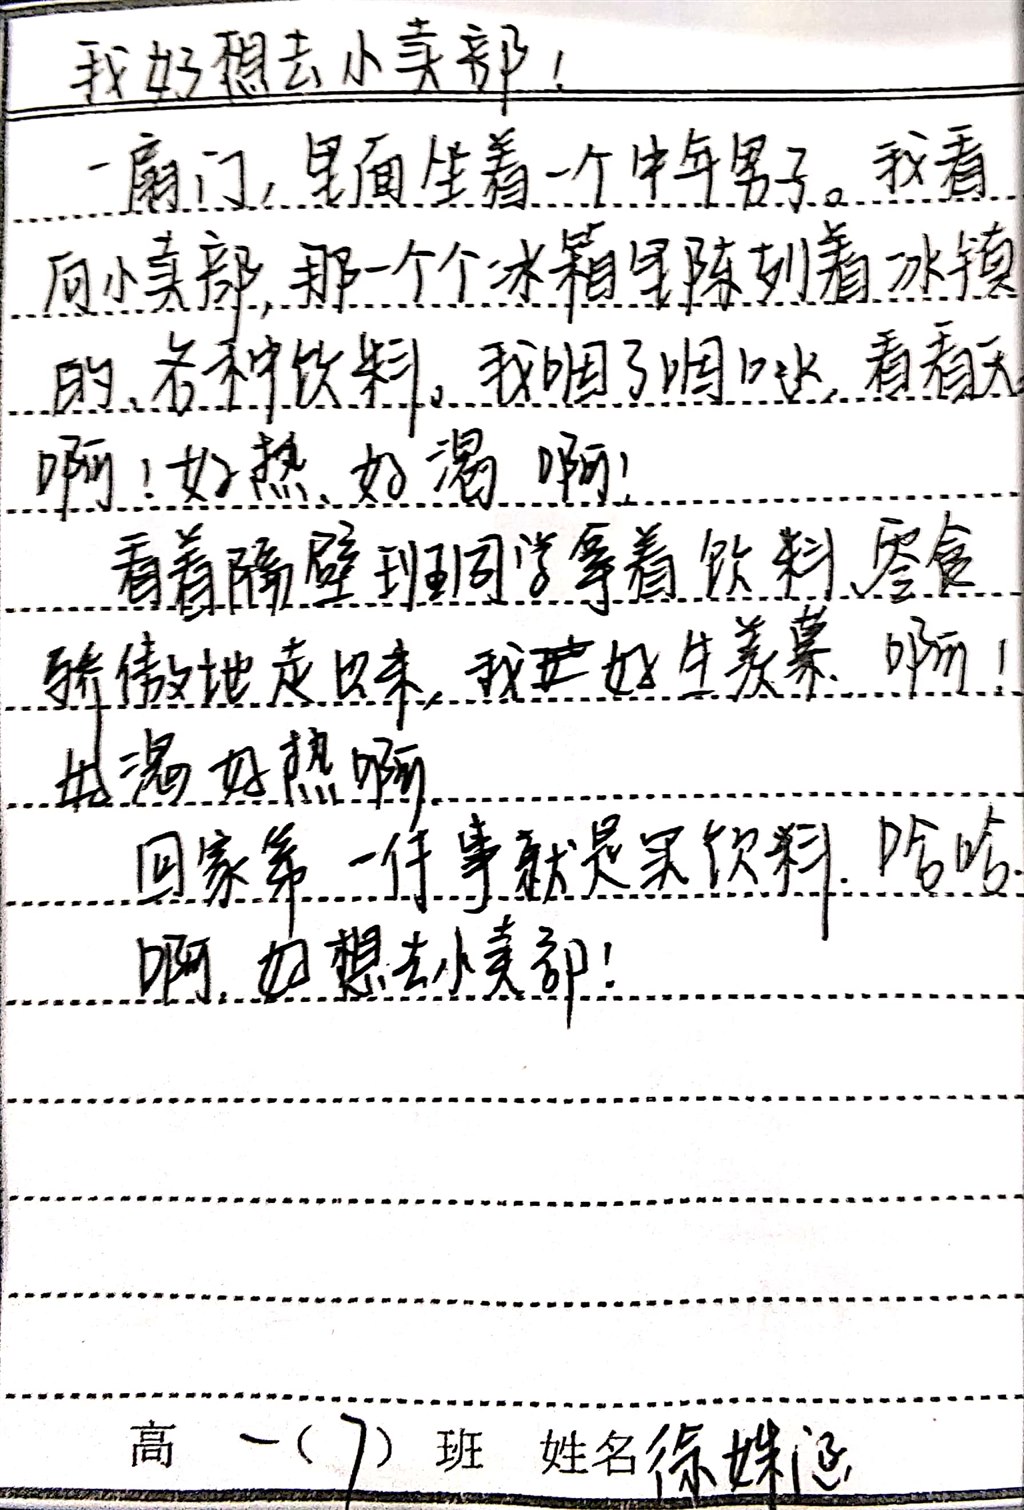 我好想去小卖部！
一扇门，里面坐着一个中年男子。我看
向小卖部，那一个个冰箱里陈列着冰镇
的、各种饮料。我咽了咽口水，看看天
啊！好热、好渴啊！
看着隔壁班同学拿着饮料、零食
骄傲地走出来，我好生羡慕啊！
好渴好热啊
回家第一件事就是买饮料.哈哈.
啊.好想去小卖部！
高一（7）班 姓名徐姝涵